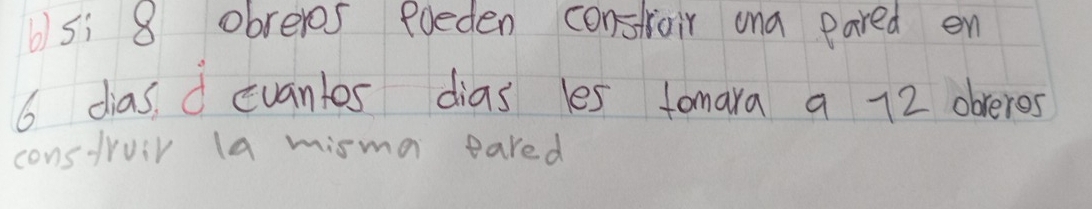 b) si 8 obreros pueden construir una pared en
6 dias. ¿ cuantos dias les tomara a 12 obreros
construir la misma pared